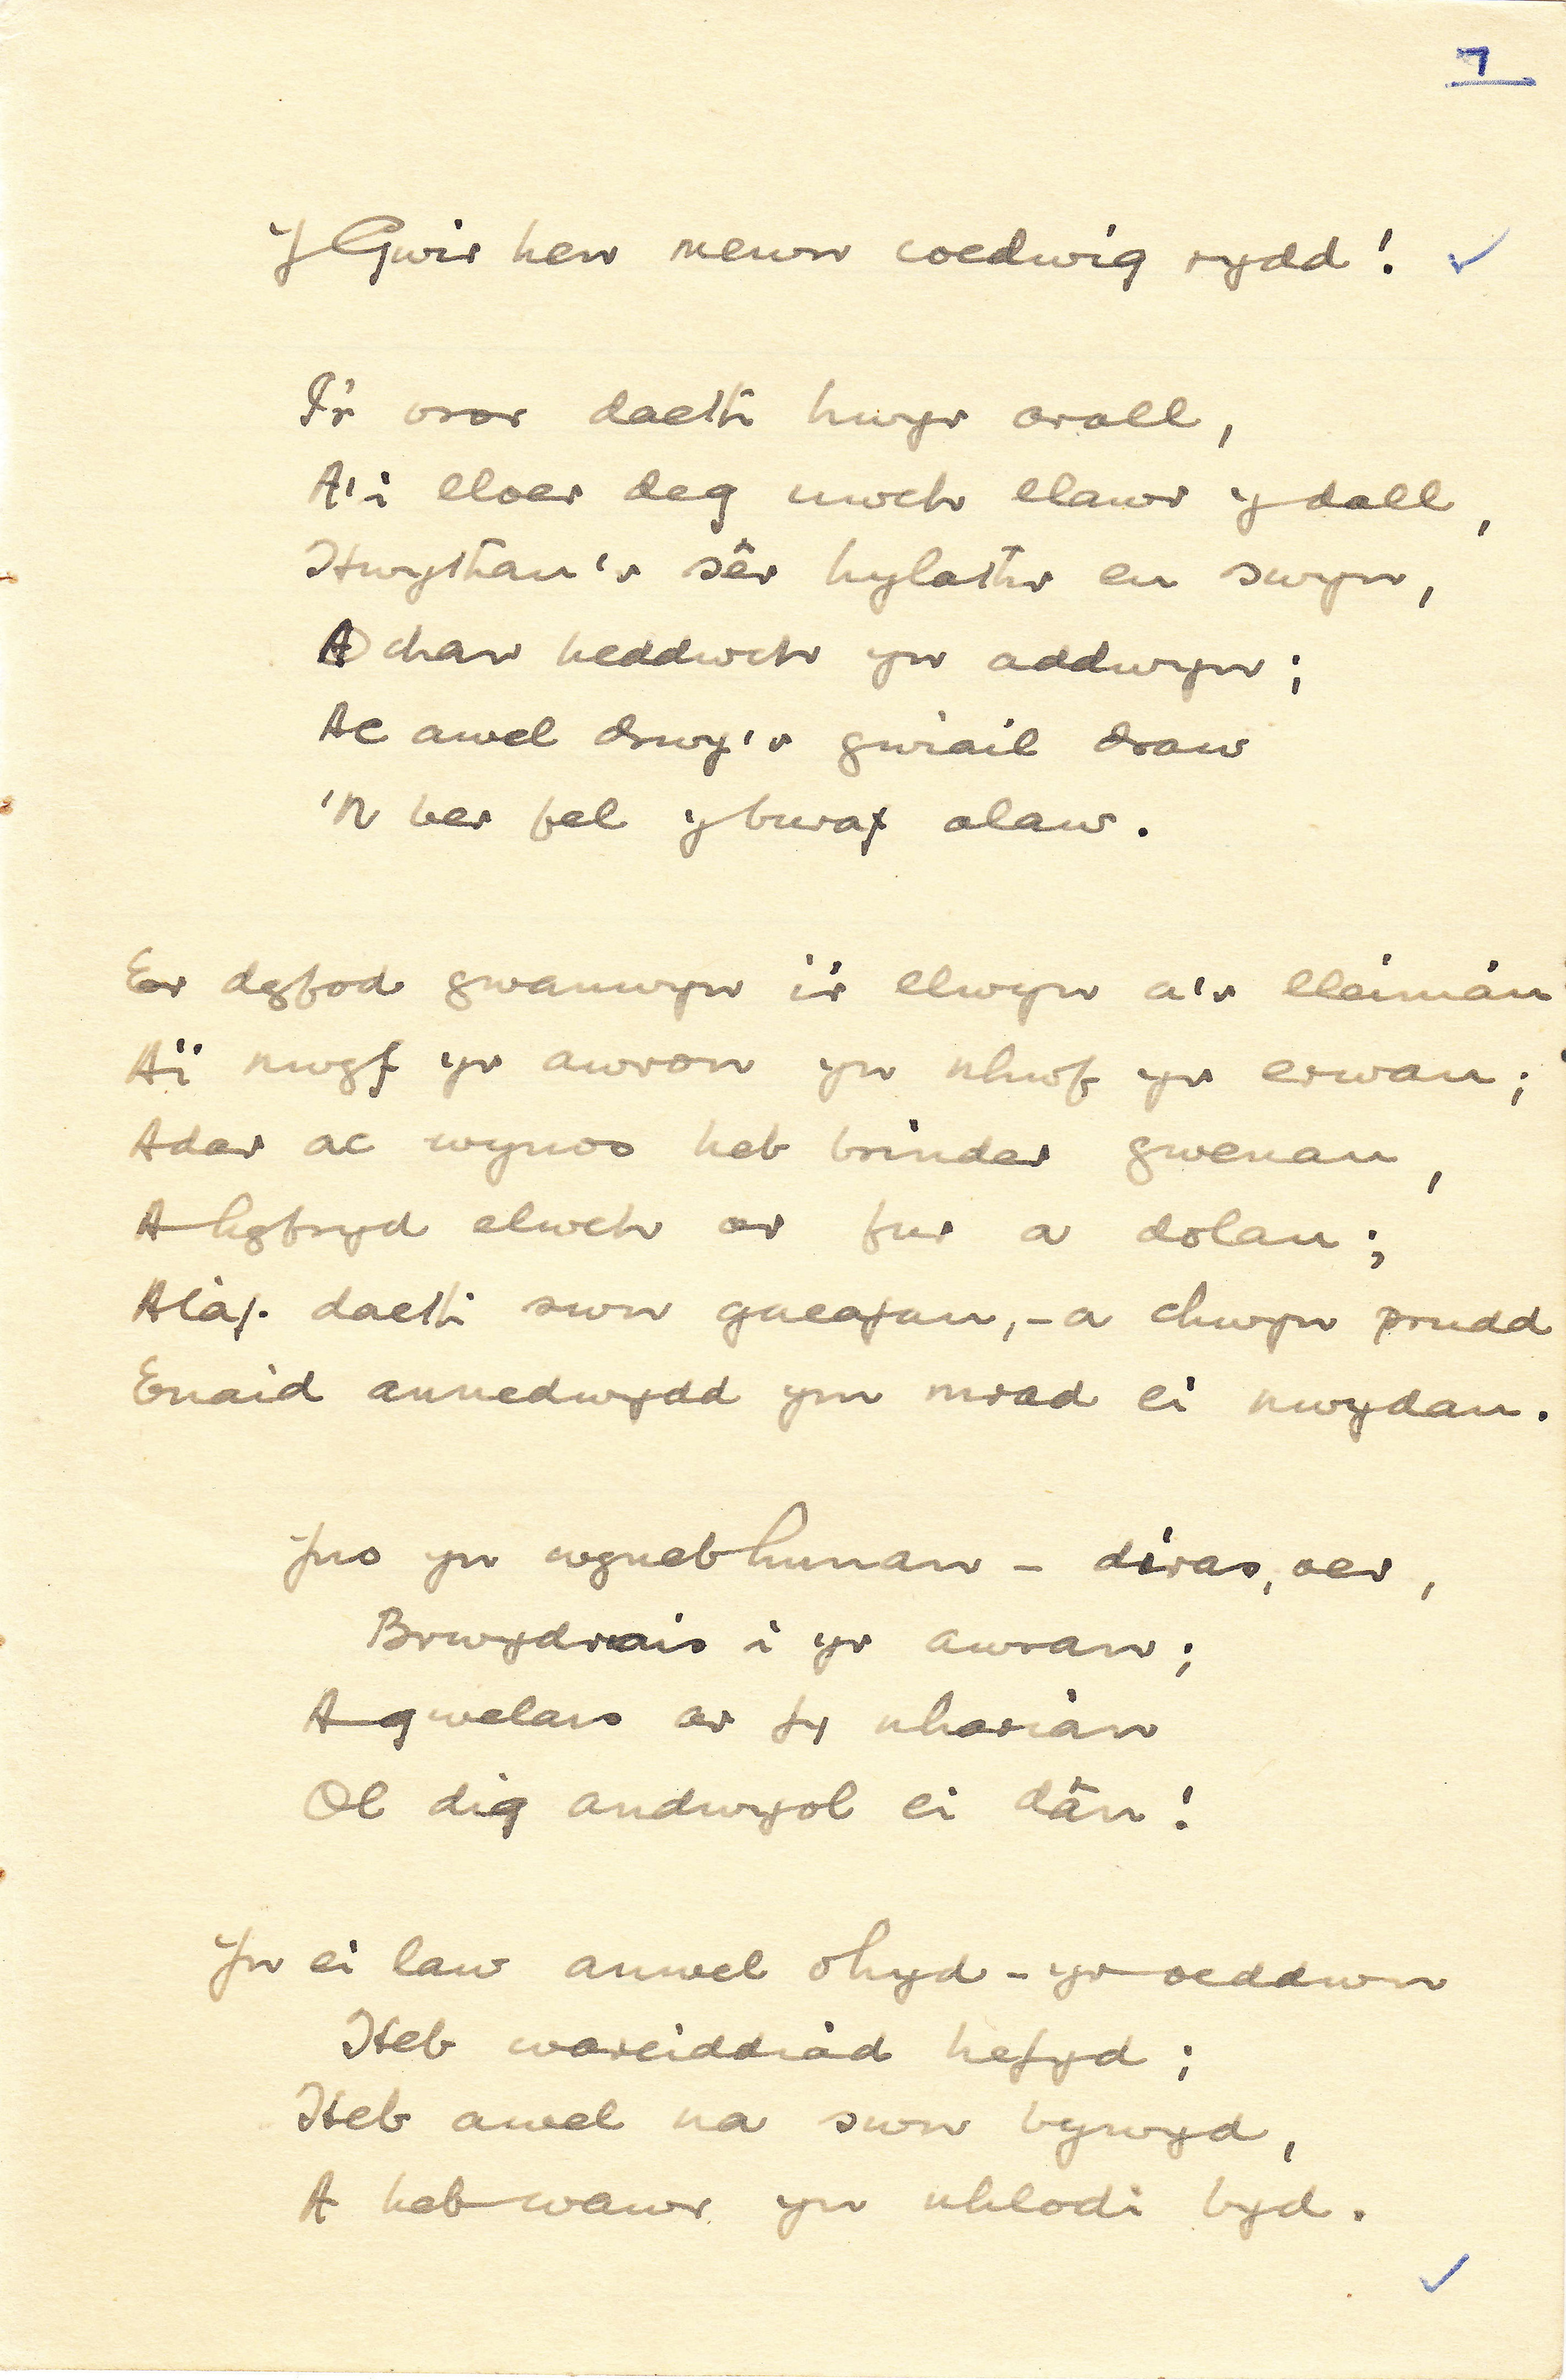 7
Y Gwir hen mewn coedwig rydd!
I'r oror daeth hwyr arall,
A'i lloer deg uwch llawr y dall,
Hwythau'r sêr hylathr eu swyn,
A chân heddwch yn addwyn;
Ac awel drwy'r gwiail draw
'N ber fel y buraf alaw.
Er dyfod gwanwyn i'r llwyn a'r lleiniau
A'i nwyf yr awron yn nhwf yr erwau;
Adar ac wynos heb brinder gwenau,
A hyfryd elwch ar fur a dolau;
Alaf daeth swn gaeafau,- a chwyn prudd
Enaid annedwydd ym mrad ei nwydau.
Yno yn wyneb hunan – diras, oer,
Brwydrais i yr awran;
A gwelais ar fy nharian
Ol dig andwyol ei dân!
Yn ei law anwel o hyd – yr oeddwn
Heb wareiddiad hefyd;
Heb awel na swn bywyd,
A heb wawr yn nhlodi byd.